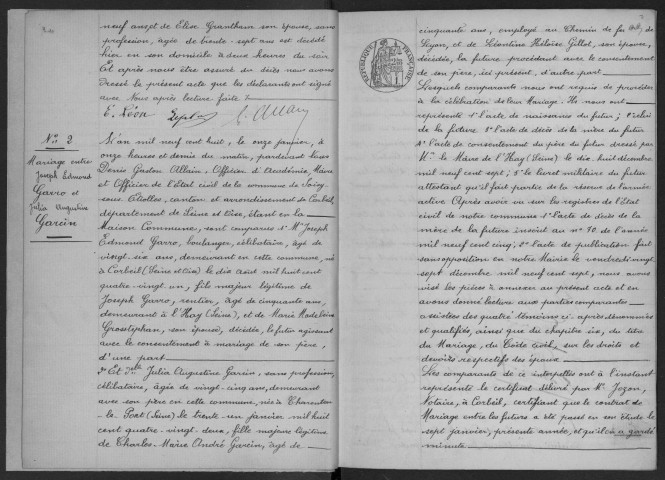 neuf ans, et de Elise Grantham son épouse, sans
profession, âgée de trente-sept ans est décédé
hier en son domicile à deux heures du soir
Et après nous être assuré du décès nous avons
Dressé le présent acte que les déclarants ont signé
avec Nous après lecture faite
E. Léon
Allain
N° 2
Mariage entre
Joseph Edmond
Garro et
Julia Augustine
Garcin
L'an mil neuf cent huit, le onze janvier, à
onze heures et demie du matin, pardevant Nous
Denis Gaston Allain, Officier d'Académie, Maire
et Officier de l'Etat civil de la commune de Soisy-
sous-Etiolles, canton et arrondissement de Corbeil,
département de Seine et Oise, étant en la
Maison Commune, sont comparus 1° Mr Joseph
Edmond Garro, boulanger, célibataire, âgé de
vingt-six ans, demeurant en cette commune, né
à Corbeil (Seine et Oise) le dix août mil huit cent
quatre-vingt-un, fils majeur légitime de
Joseph Garro, rentier, âgé de cinquante ans,
demeurant à l'Hay (Seine), et de Marie Madeleine
Grosstiphan, son épouse, décédée, le futur agissant
avec le consentement à mariage de son père,
d'une part
2° Et Dlle Julia Augustine Garcin, sans profession,
célibataire, âgée de vingt-cinq ans, demeurant
avec son père en cette commune, née à Charenton-
le-Pont (Seine) le trente-un janvier mil huit
cent quatre-vingt-deux, fille majeure légitime
de Charles-Marie André Garcin, âgé de
RÉPUBLIQUE FRANÇAISE
cinquante ans, employé au Chemin de fer de
Lyon, et de Léontine Héloïse Gillot, son épouse,
décédée, la future procédant avec le consentement
de son père, ici présent, d'autre part.
Lesquels comparants nous ont requis de procéder
à la célébration de leur Mariage. Ils nous ont
représenté 1° l'acte de naissance du futur; 2° celui
de la future 3° l'acte de décès de la mère du futur
4° l'acte de consentement du père du futur dressé par
Mr le Maire de l'Hay (Seine) le dix-huit décembre
mil neuf cent sept; 5° le livret militaire du futur
attestant qu'il fait partie de la réserve de l'armée
active. Après avoir vu sur les registres de l'Etat
civil de notre commune 1° l'acte de décès de la
mère de la future inscrit au n° 10 de l'année
mil neuf cent cinq; 2° l'acte de publication fait
sans opposition en notre Mairie le vendredi vingt-
sept décembre mil neuf cent sept, nous avons
visé les pièces à annexer au présent acte et en
avons donné lecture aux parties comparantes
assistées des quatre témoins ci-après dénommés
et qualifiés, ainsi que du chapitre six, du titre
du Mariage, du Code civil, sur les droits et
devoirs respectifs des époux
Les comparants de ce interpellés ont à l'instant
représenté le certificat délivré par Mr Jozon,
Notaire, à Corbeil, certifiant que le contrat de
Mariage entre les futurs a été passé en son étude le
sept janvier, présente année, et qu'il en a gardé
minute